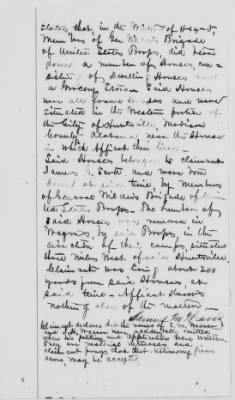 states that in the Winter of 1863-4,
Members of Gen Brigade
of United States Troops, did tear
down a number of Houses, con-
sisting of Dwelling Houses and
a Grocery Store. Said Houses
were all frame Houses and were
situated in the Western portion of
the City of Huntsville, Madison
County, Alabama, near the House
in which Affiant then lived.
Said Houses belonged to claimant
James and were torn
down at said time by Members
of General Brigade of Uni-
ted States Troops. The Number of
said Houses was removed in
Wagons, by said Troops, in the
direction of their camps, situated
three miles West of said Huntsville.
Claimant was living about 200
yards from said Houses, at
said time. Affiant knows
nothing else of the matter.
Claimant declares that the names of
and were accidentally omitted
when his petition and application were written
They are material witnesses and
claimant prays that their testimony, given
may be accepted